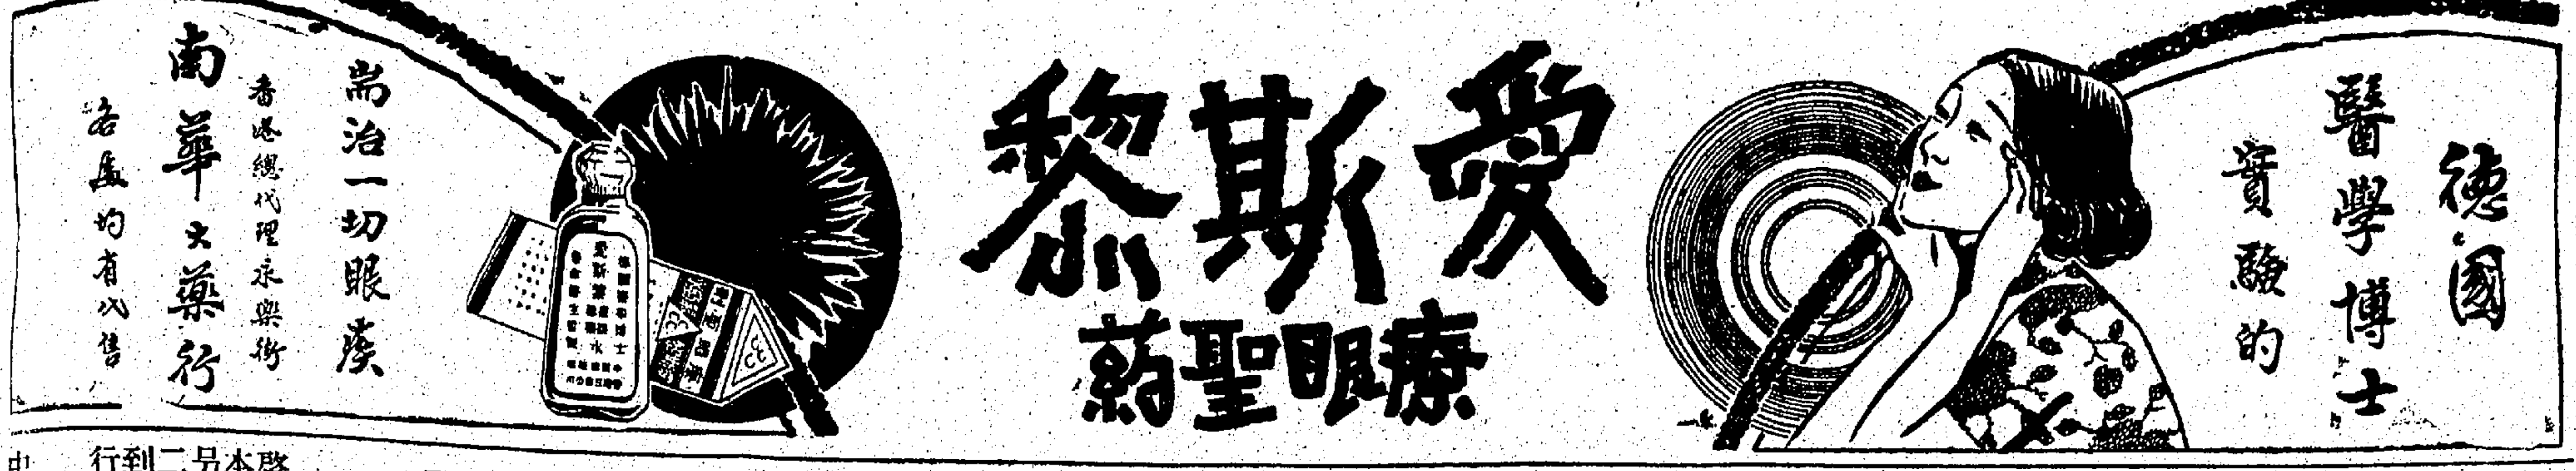 德國
醫學博士
實驗的
愛斯黎
療眼聖药
耑治一切眼疾
香港總代理永樂街
南華大藥行
各處均有代售